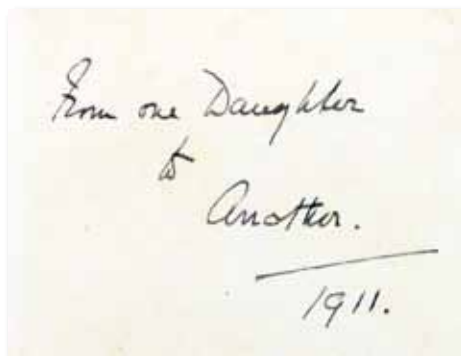 From one Daughter
to
Another.
1911.